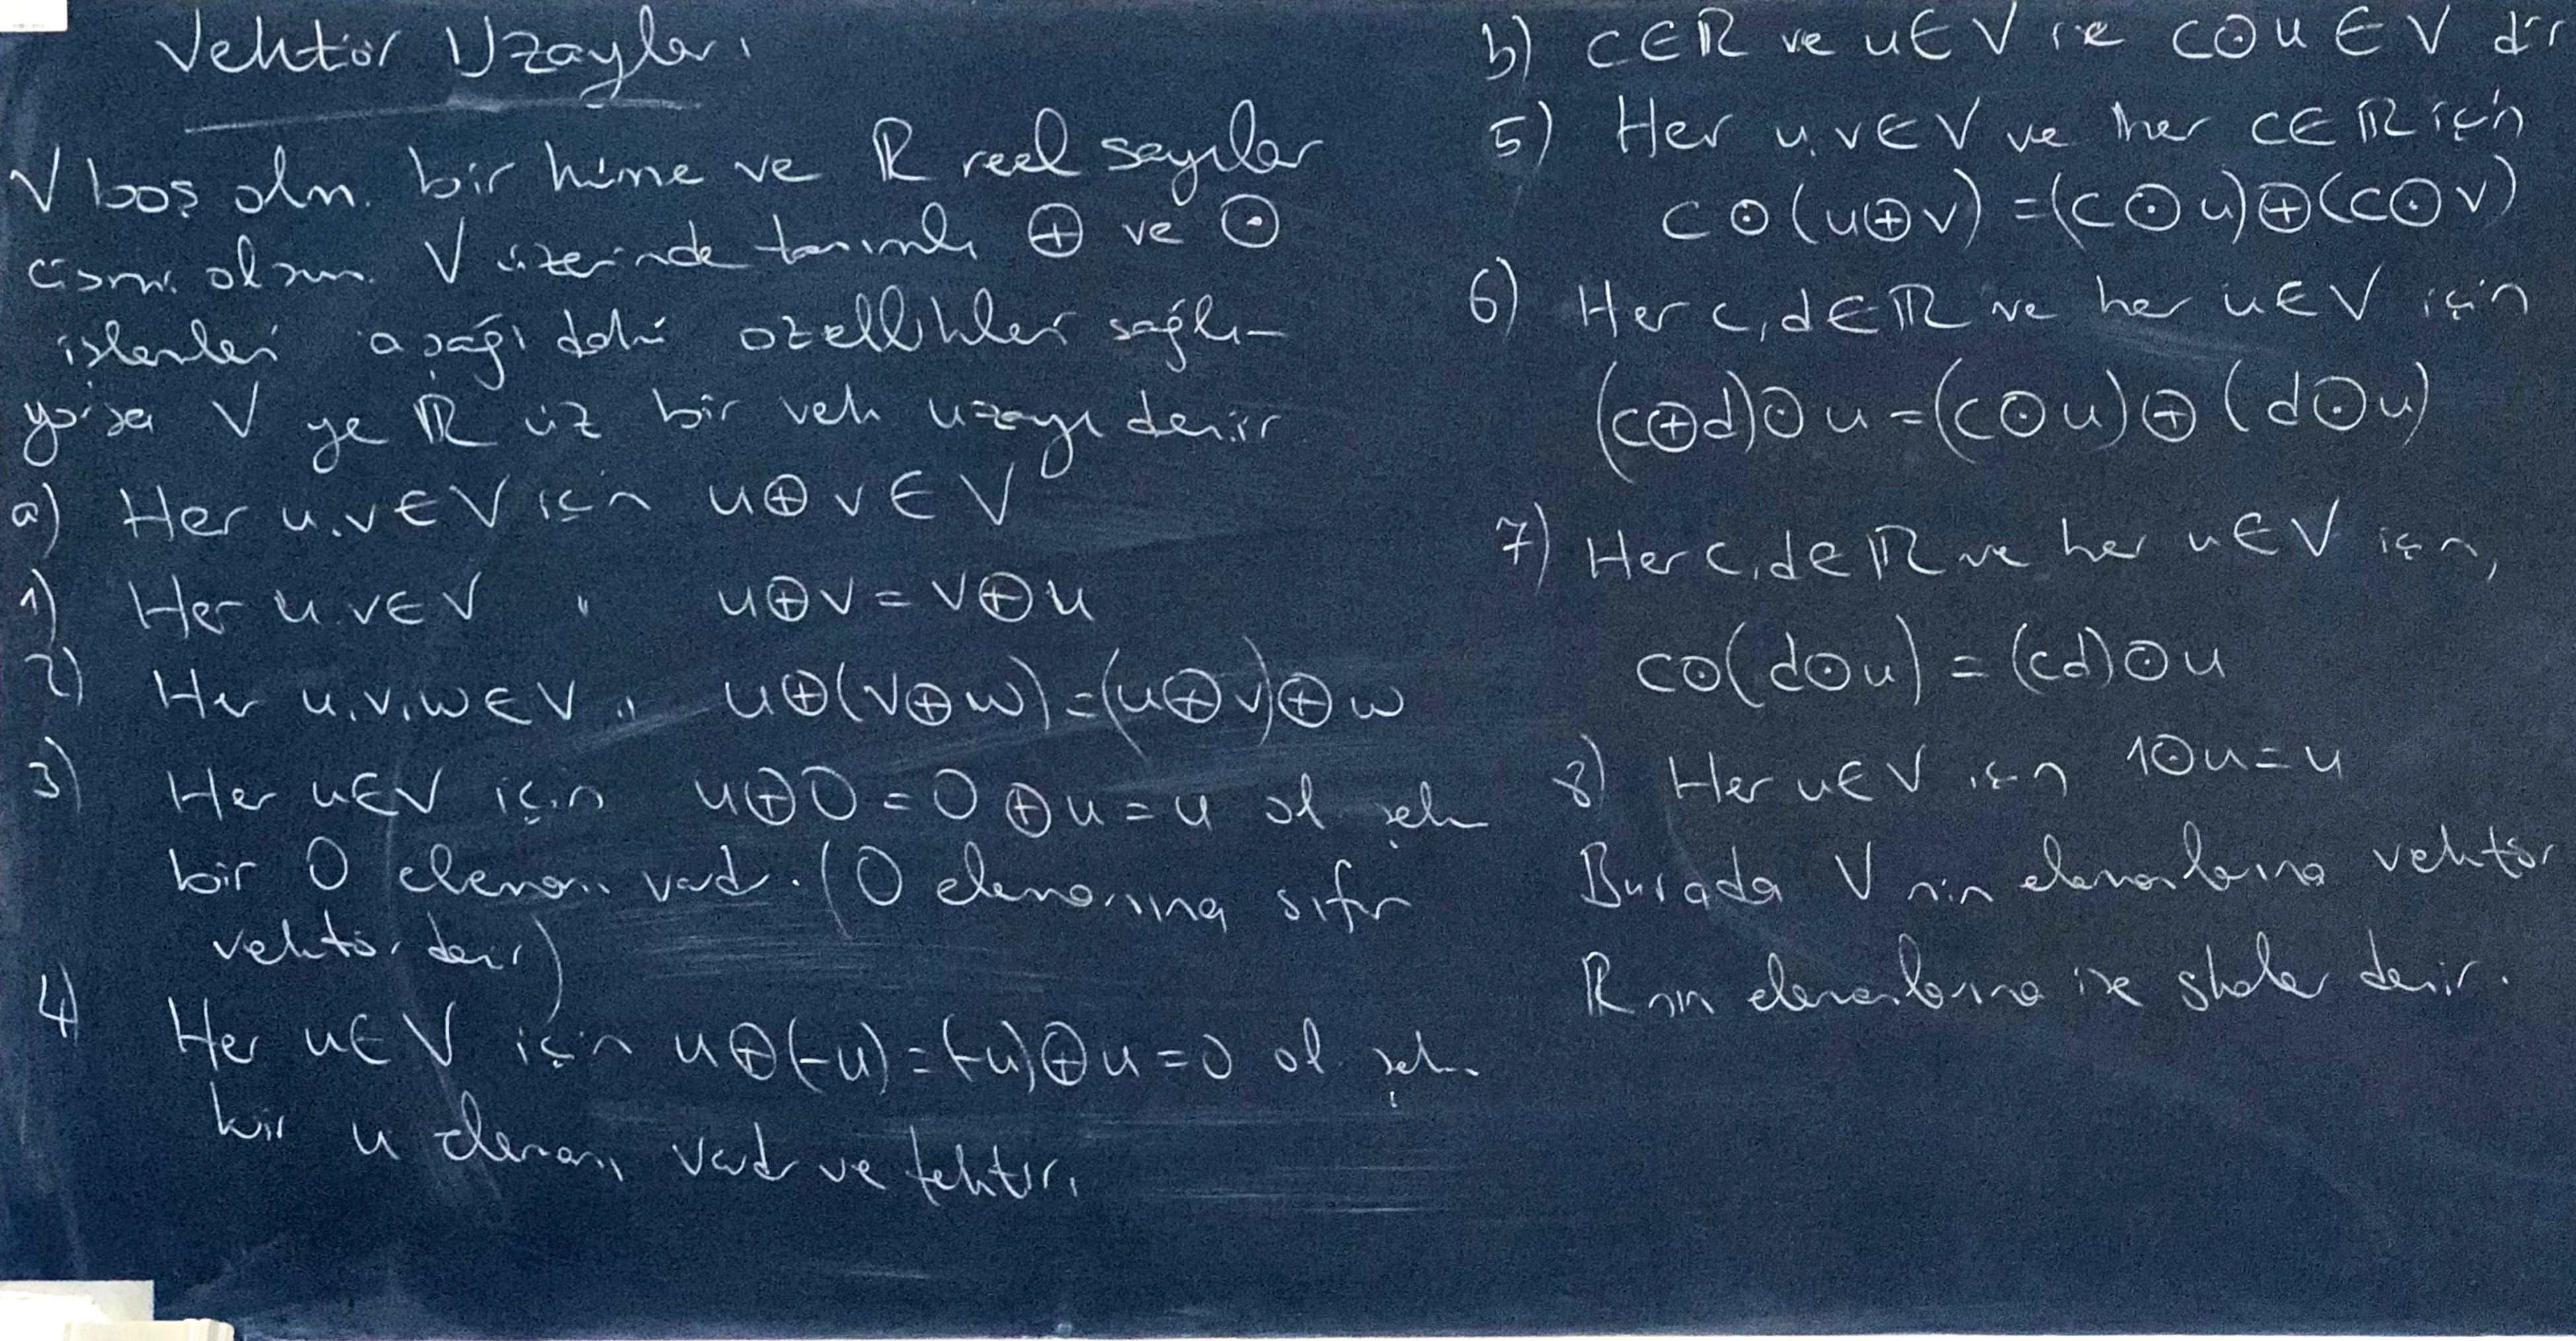 Vektör Uzayları
V boş olm. bir küme ve ℝ reel sayılar
cismi olsun. V üzerinde tanımlı ⊕ ve ⊙
işlemleri aşağıdaki özellikleri sağlı-
yorsa V ye ℝ üz bir vek uzayı denir
a) Her u,v∈V için u⊕v∈V
1) Her u,v∈V " u⊕v=v⊕u
2) Her u,v,w∈V " u⊕(v⊕w)=(u⊕v)⊕w
3) Her u∈V için u⊕0=0⊕u=u ol. şek
bir 0 elemanı vard. (0 elemanına sıfır
vektör denir)
4) Her u∈V için u⊕(-u)=(-u)⊕u=0 ol. şek.
bir u elemanı vardır ve tektir.
b) c∈ℝ ve u∈V ise c⊙u∈V dir
5) Her u,v∈V ve her c∈ℝ için
c⊙(u⊕v)=(c⊙u)⊕(c⊙v)
6) Her c,d∈ℝ ve her u∈V için
(c⊕d)⊙u=(c⊙u)⊕(d⊙u)
7) Her c,d∈ℝ ve her u∈V için,
c⊙(d⊙u)=(cd)⊙u
8) Her u∈V için 1⊙u=u
Burada V nin elemanlarına vektör
ℝ nin elemanlarına ise skaler denir.